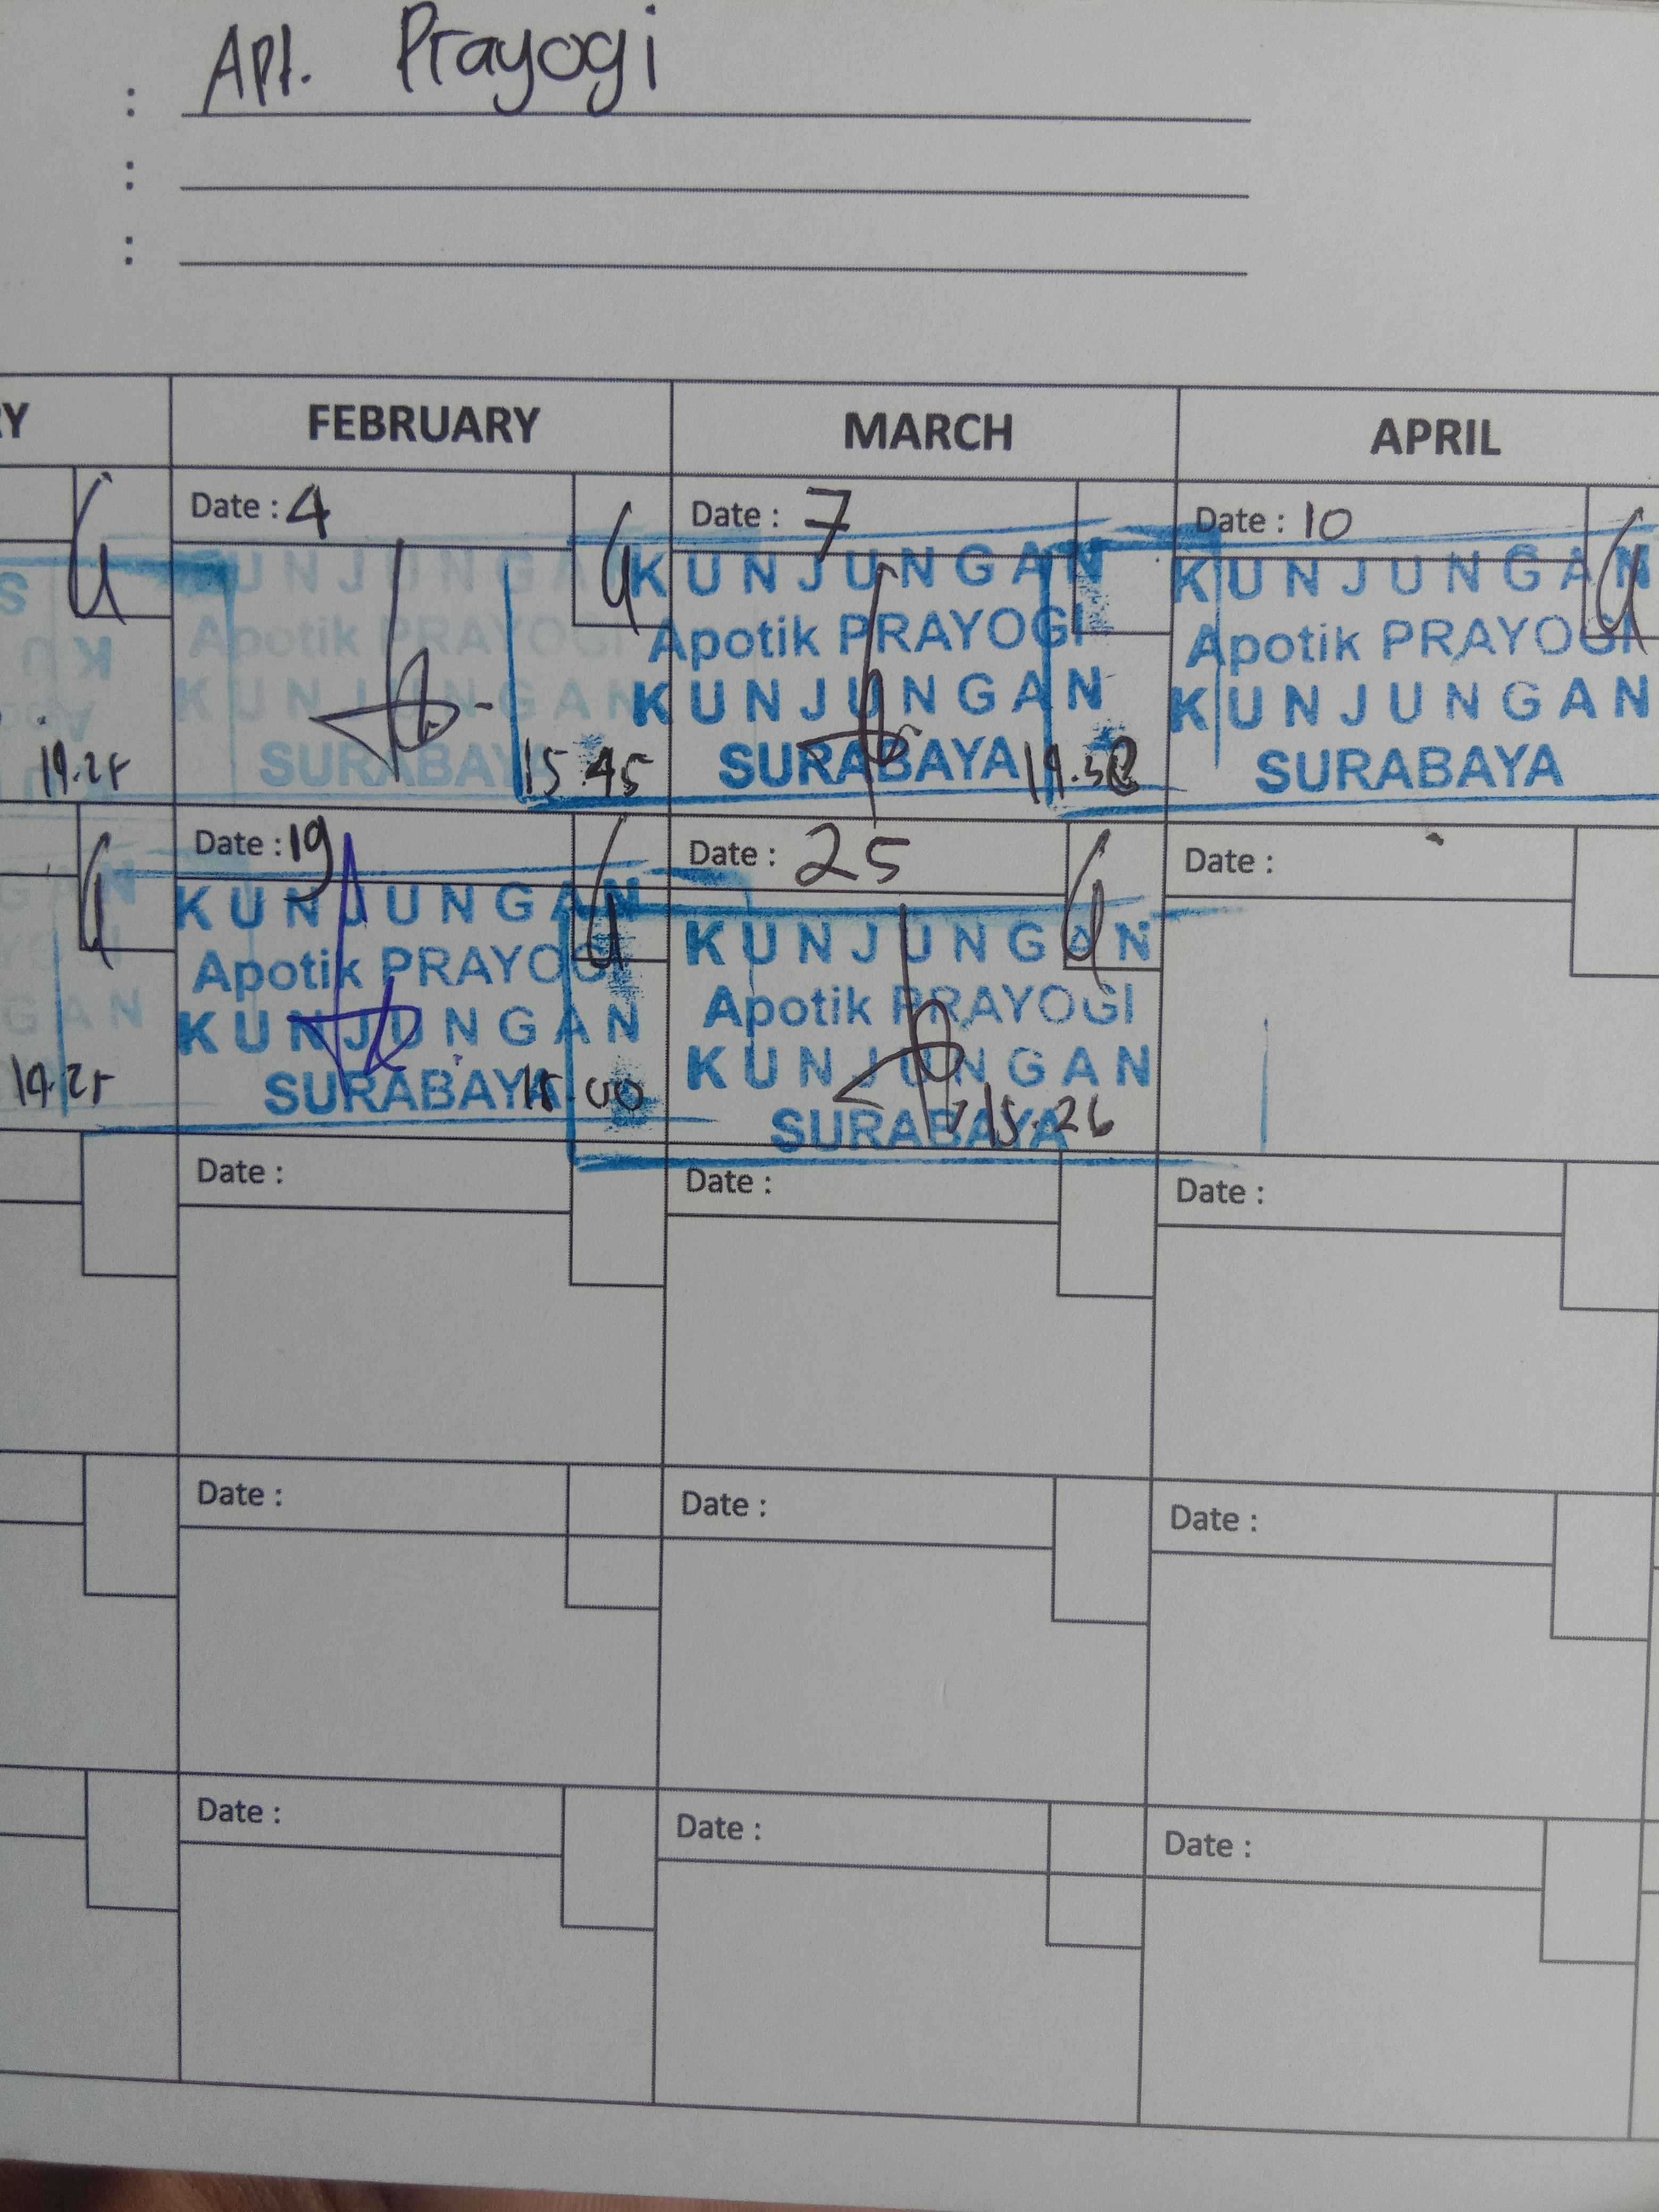 : Apt. Prayogi
:
:
RY FEBRUARY MARCH APRIL
Date : 4 Date : 7 Date : 10
KUNJUNGAN KUNJUNGAN KUNJUNGAN
Apotik PRAYOGI Apotik PRAYOGI Apotik PRAYOGI
KUNJUNGAN KUNJUNGAN KUNJUNGAN
SURABAYA SURABAYA SURABAYA
15.45
Date : 19 Date : 25 Date :
KUNJUNGAN KUNJUNGAN
Apotik PRAYOGI Apotik PRAYOGI
KUNJUNGAN KUNJUNGAN
SURABAYA SURABAYA
15.00 15.26
Date : Date : Date :
Date : Date : Date :
Date : Date : Date :